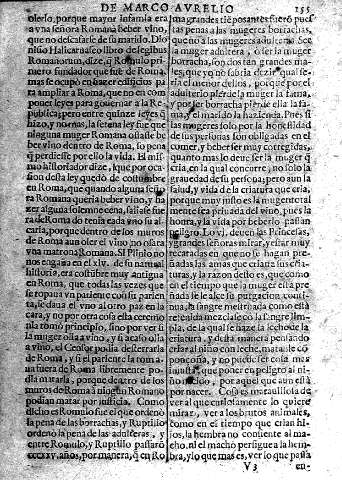 DE MARCO AVRELIO 155
olerlo, porque mayor infamia era
a vna señora Romana beber vino,
que no desacatarse de su marido. Dio
nisio Halicarnaseo libro de legibus
Romanorum, dize, que Romulo pri-
mero fundador que fue de Roma,
mas se ocupò en hazer edificios pa
ra ampliar a Roma, que no en com
poner leyes para gouernar a la Re-
publica; pero entre quinze leyes que
hizo, y normas, la setena ley fue que
ninguna muger Romana osasse be
ber vino dentro de Roma, so pena
que perdiesse por ello la vida. El mis
mo historiador dize, que por oca-
sion desta ley quedò de costumbre
en Roma, que quando alguna seño
ra Romana queria beber vino, y ha
zer alguna solemne cena, salia se fue
ra de Roma do tenia cada vno su al-
caria, porque dentro de los muros
de Roma aun oler el vino no osaua
vna matrona Romana. Si Plinio no
nos engaña en el xiv. de su natural
historia, era costumbre muy antigua
en Roma, que todas las vezes que
se topaua vn pariente con su parien
ta, le daua el vno al otro paz en la
cara, y no por otra cosa esta ceremo
nia tomò principio, sino por ver si
la muger olia a vino, y si acaso olia
a vino, el Censor podia desterrarla
de Roma, y si el pariente la toma-
ua fuera de Roma libremente po-
dia matarla, porque dentro de los
muros de Roma a ningun Romano
podian matar por justicia. Como
dicho es Romulo fue el que ordenò
la pena de las borrachas, y Ruptilio
ordenò la pena de las adulteras, y
entre Romulo, y Ruptilio passarò
años, por manera, que en Ro
ma grandes tiempos antes fuero pues
tas penas a las mugeres borrachas,
que no a las mugeres adulteras. Sea
la muger adultera, o sea la muger
borracha, son dos tan grandes ma-
les, que yo no sabria dezir qual se-
ria el menor dellos, porque por el
adulterio pierde la muger la fama,
y por ser borracha pierde ella la fa-
ma, y el marido la hazienda. Pues si
las mugeres solo por la honestidad
de sus personas son obligadas en el
comer, y beber ser muy corregidas,
quanto mas lo deue ser la muger
en la qual concurre, no solo la
grauedad de su persona, pero aun la
salud, y vida de la criatura que cria,
porque muy justo es la muger tenta
mente sea priuada del vino, pues la
honra, y la vida por beberlo passan
peligro. Lo vj. deuen las Princesas,
y grandes señoras mirar, y estar muy
recatadas en que no se hagan pre-
ñadas las amas que crian sus cria
turas, y la razon desto es, que como
en el tiempo que la muger està pre
ñada se le alce su purgacion conti-
nua, la sangre mestruada como està
retenida mezclase cõ la sangre lim-
pia, de la qual se haze la leche de la
criatura, y desta manera pensando
criar al niño con leche, matanle cõ
ponçoña, y no puede ser cosa mas
injusta, que poner en peligro al ni-
ño nacido, por aquel que aun està
por nacer. Cosa es marauillosa de
ver al que curiosamente lo quiere
mirar, ver a los brutos animales,
como en el tiempo que crian hi-
jos, la hembra no consiente al ma-
cho, ni el macho persigue la hem-
bra, y lo que mas es, ver lo que passa
V 3 en-